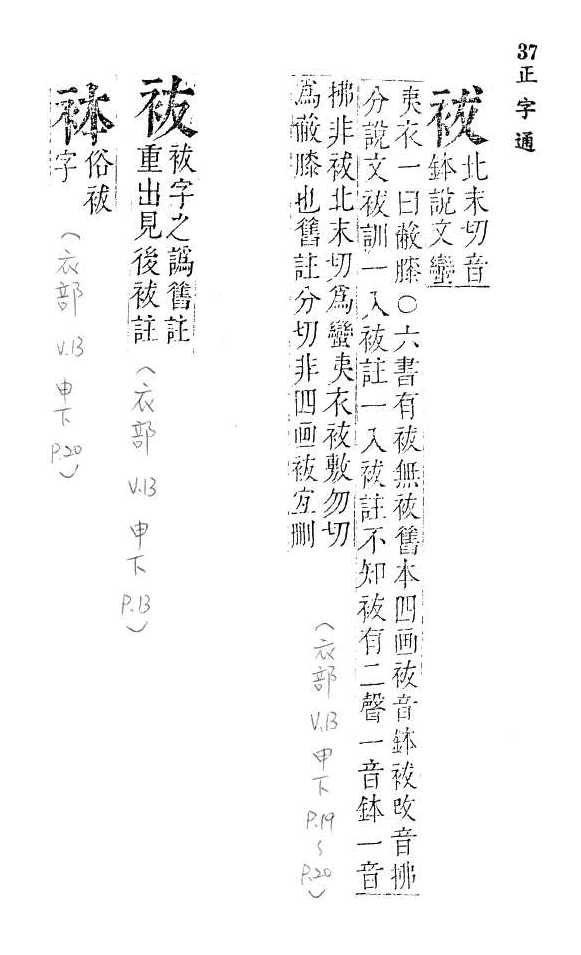 37 正字通
袚
北末切音
鉢說文蠻
夷衣一曰蔽膝○六書有袚無袯舊本四画袯音鉢袚改音拂
分說文袚訓一入袯註一入袚註不知袚有二聲一音鉢一音
拂非袚北末切爲蠻夷衣袚敷勿切
爲蔽膝也舊註分切非四画袯宜刪
(衣部 V.13 申下 P.19~P.20)
袯
袚字之譌舊註
重出見後袚註
(衣部 V.13 申下 P.13)
俗袚
字
(衣部 V.13 申下 P.20)